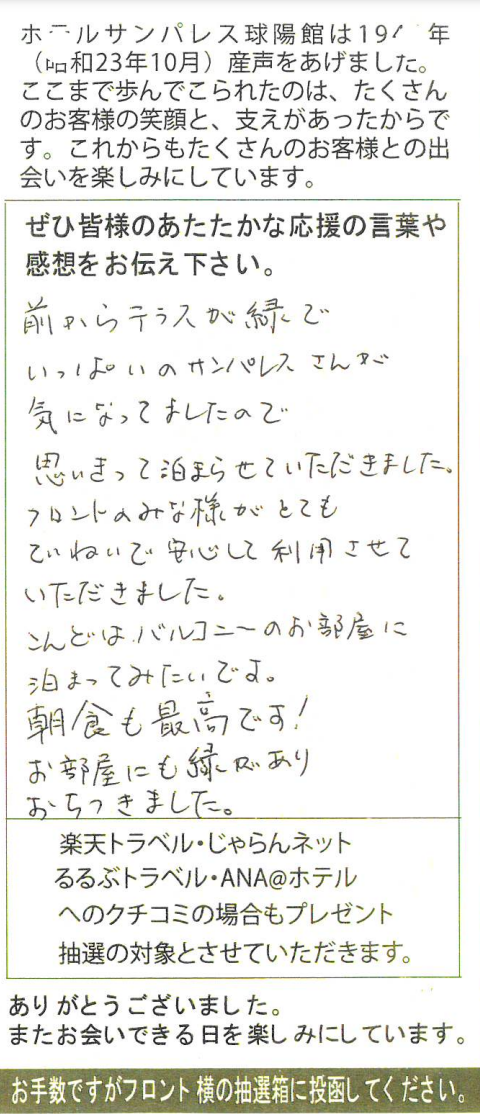 ホテルサンパレス球陽館は19 年
（昭和23年10月）産声をあげました。
ここまで歩んでこられたのは、たくさん
のお客様の笑顔と、支えがあったからで
す。これからもたくさんのお客様との出
会いを楽しみにしています。
ぜひ皆様のあたたかな応援の言葉や
感想をお伝え下さい。
前からテラスが緑で
いっぱいのサンパレスさんが
気になってましたので
思いきって泊まらせていただきました。
フロントのみな様がとても
ていねいで安心して利用させて
いただきました。
こんどは、バルコニーのお部屋に
泊まってみたいです。
朝食も最高です！
お部屋にも緑があり
おちつきました。
楽天トラベル・じゃらんネット
るるぶトラベル・ANA@ホテル
へのクチコミの場合もプレゼント
抽選の対象とさせていただきます。
ありがとうございました。
またお会いできる日を楽しみにしています。
お手数ですがフロント横の抽選箱に投函してください。